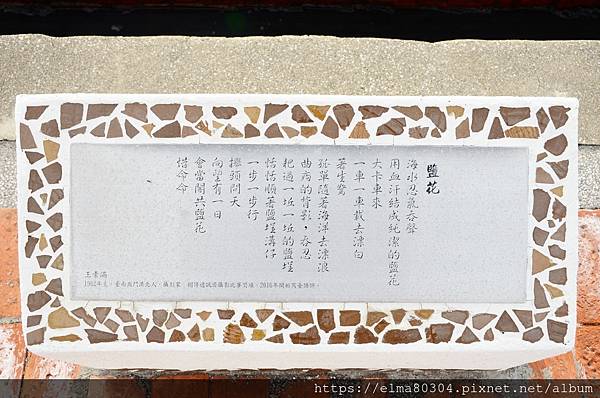 鹽花
海水忍氣吞聲
用血汗結成純潔的鹽花
大卡車來
一車一車載去漂白
著生驚
孤單隨著海洋去漂浪
曲痀的背影，吞忍
耙過一坵一坵的鹽埕
恬恬順著鹽埕溝仔
一步一步行
攑頭問天
向望有一日
會當開共鹽花
惜命命
王素滿
1962年生，臺南
https://elma80304.pixnet.net/album